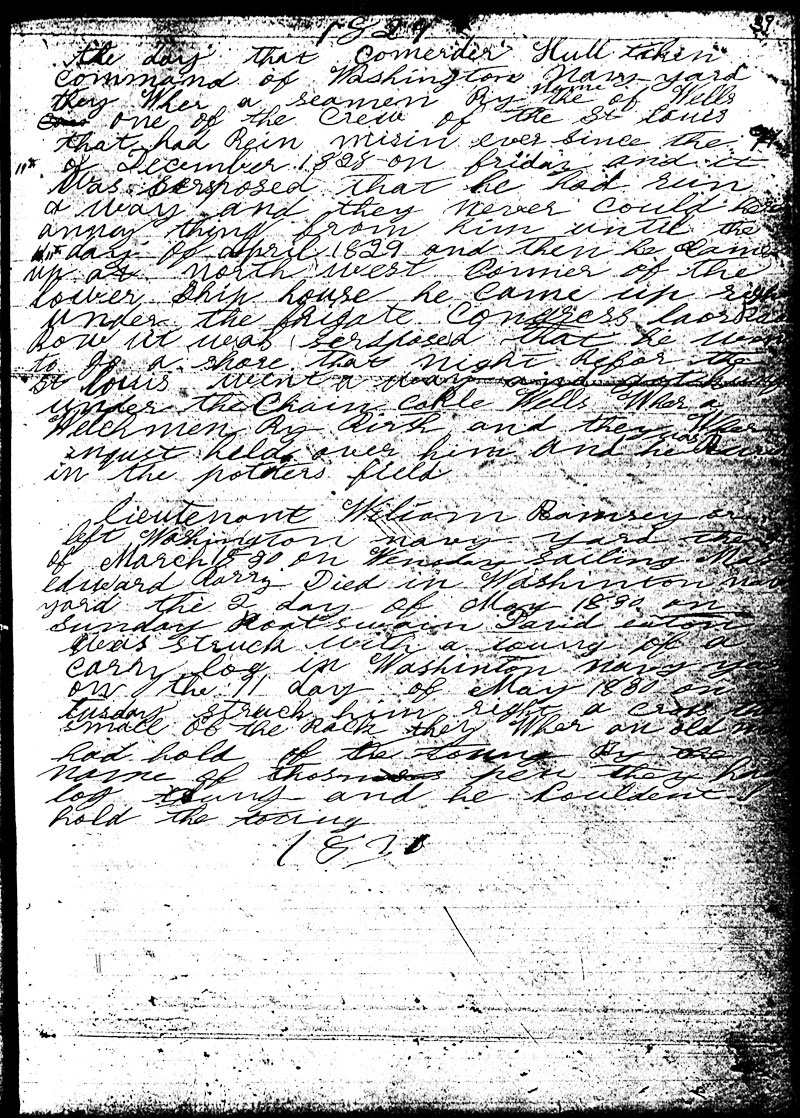 1829
39
the day that Comerder Hull taken
command of Washington Navy yard
they Wher a seamen By the name of Wells
one of the Crew of the St Louis
that had Bein misin ever since the
11th of December 1828 on friday and it
Was sersposed that he had run
a way and they never could hear
annay thing from him until the
day of april 1829 and then he came
up at north west Corner of the
lower Ship house he came up right
under the frigate Congress
how it was sersposed that he
to go a shore that night Befor the
St Louis went a way
under the Chain cable Wells Wher a
Welchmen By Birth and they Wher
inqust helde over him and he was
in the potters field
lieutenant Wiliam Ramsey
left Washington navy yard the
of March 1830 on Wensday Sailing
edward Barry Died in Washinton navy
yard the 2 day of May 1830 on
sunday Boatswain David eaton
was struck with a toung of a
carry log in Washinton navy yard
on the 11 day of May 1830 on
tusday struck him right a cross
small of the Back they Wher an old man
had hold of the toung By the
name of thosm peen they had
log toung and he couldent
hold the toung
1830